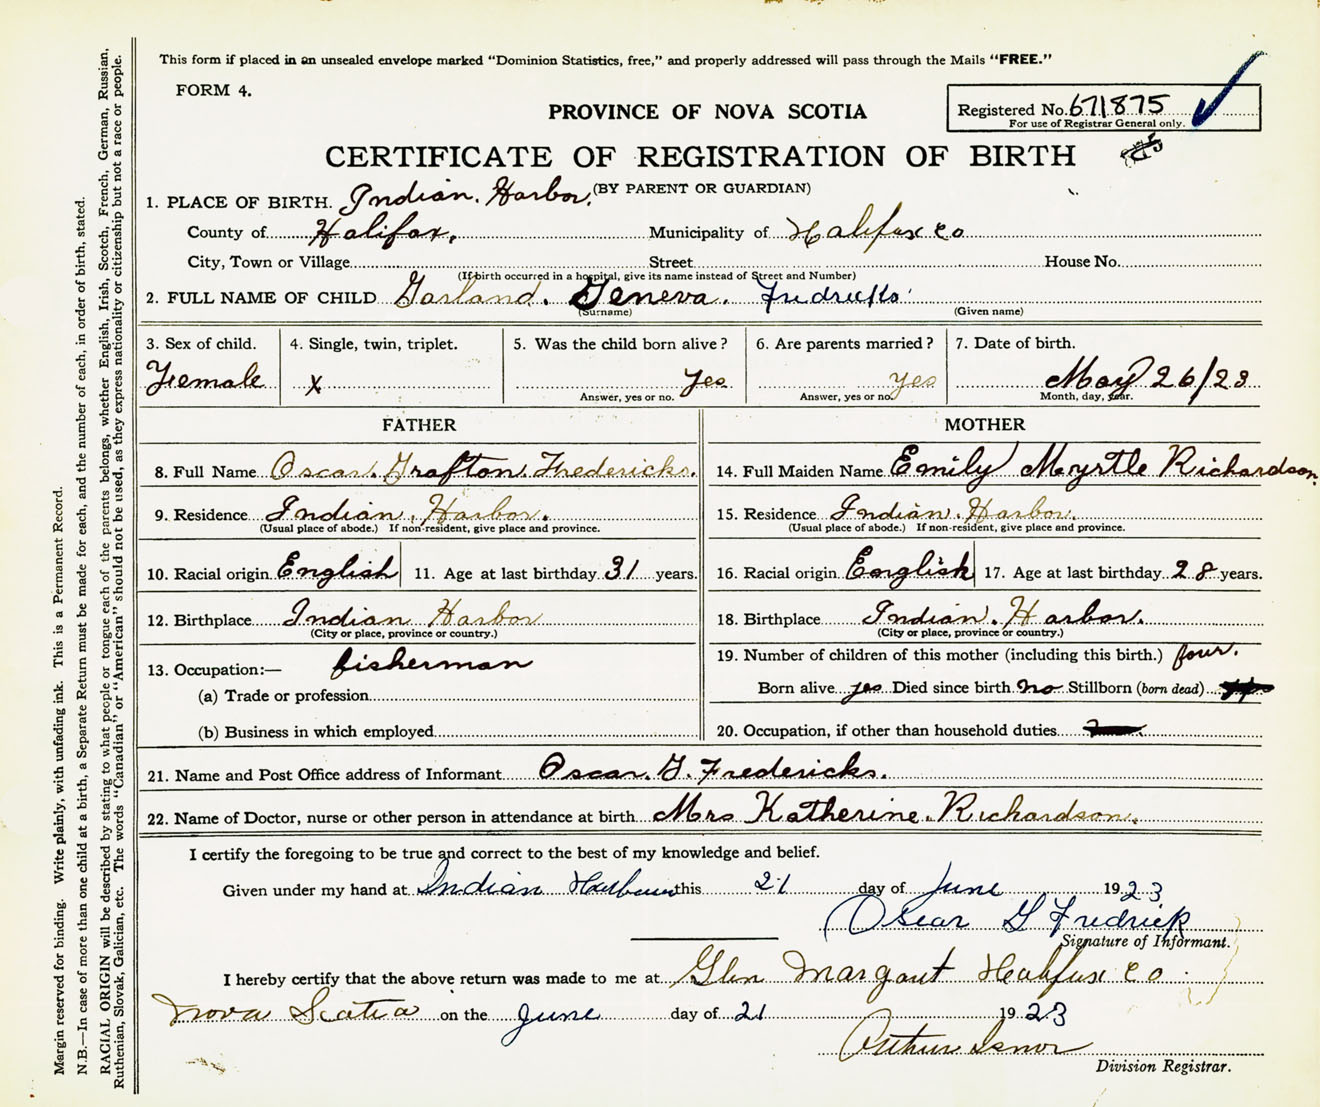 This form if placed in an unsealed envelope marked "Dominion Statistics, free," and properly addressed will pass through the Mails "FREE."
FORM 4.
PROVINCE OF NOVA SCOTIA
Registered No. 671875
For use of Registrar General only.
CERTIFICATE OF REGISTRATION OF BIRTH
(BY PARENT OR GUARDIAN)
1. PLACE OF BIRTH. Indian. Harbor.
County of Halifax. Municipality of Halifax Co
City, Town or Village Street House No.
(If birth occurred in a hospital, give its name instead of Street and Number)
2. FULL NAME OF CHILD Garland. Geneva. Fredricks
(Surname) (Given name)
3. Sex of child. 4. Single, twin, triplet. 5. Was the child born alive? 6. Are parents married? 7. Date of birth.
Female X yes yes May 26/23
Answer, yes or no. Answer, yes or no. Month, day, year.
FATHER MOTHER
8. Full Name Oscar. Grafton. Fredericks. 14. Full Maiden Name Emily Myrtle Richardson.
9. Residence Indian. Harbor. 15. Residence Indian. Harbor.
(Usual place of abode.) If non-resident, give place and province. (Usual place of abode.) If non-resident, give place and province.
10. Racial origin English 11. Age at last birthday 31 years. 16. Racial origin English 17. Age at last birthday 28 years.
12. Birthplace Indian Harbor 18. Birthplace Indian. Harbor.
(City or place, province or country.) (City or place, province or country.)
13. Occupation:— fisherman 19. Number of children of this mother (including this birth.) four.
(a) Trade or profession Born alive yes Died since birth no Stillborn (born dead)
(b) Business in which employed 20. Occupation, if other than household duties
21. Name and Post Office address of Informant Oscar. G. Fredericks.
22. Name of Doctor, nurse or other person in attendance at birth Mrs Katherine. Richardson.
I certify the foregoing to be true and correct to the best of my knowledge and belief.
Given under my hand at Indian Harbour this 21 day of June 1923
Oscar G Fredrick
Signature of Informant.
I hereby certify that the above return was made to me at Glen Margaut Halifax Co
Nova Scotia on the June day of 21 1923
Arthur Isnor
Division Registrar.
Margin reserved for binding. Write plainly, with unfading ink. This is a Permanent Record.
N.B.—In case of more than one child at a birth, a Separate Return must be made for each, and the number of each, in order of birth, stated.
RACIAL ORIGIN will be described by stating to what people or tongue each of the parents belongs, whether English, Irish, Scotch, French, German, Russian,
Ruthenian, Slovak, Galician, etc. The words "Canadian" or "American" should not be used, as they express nationality or citizenship but not a race or people.